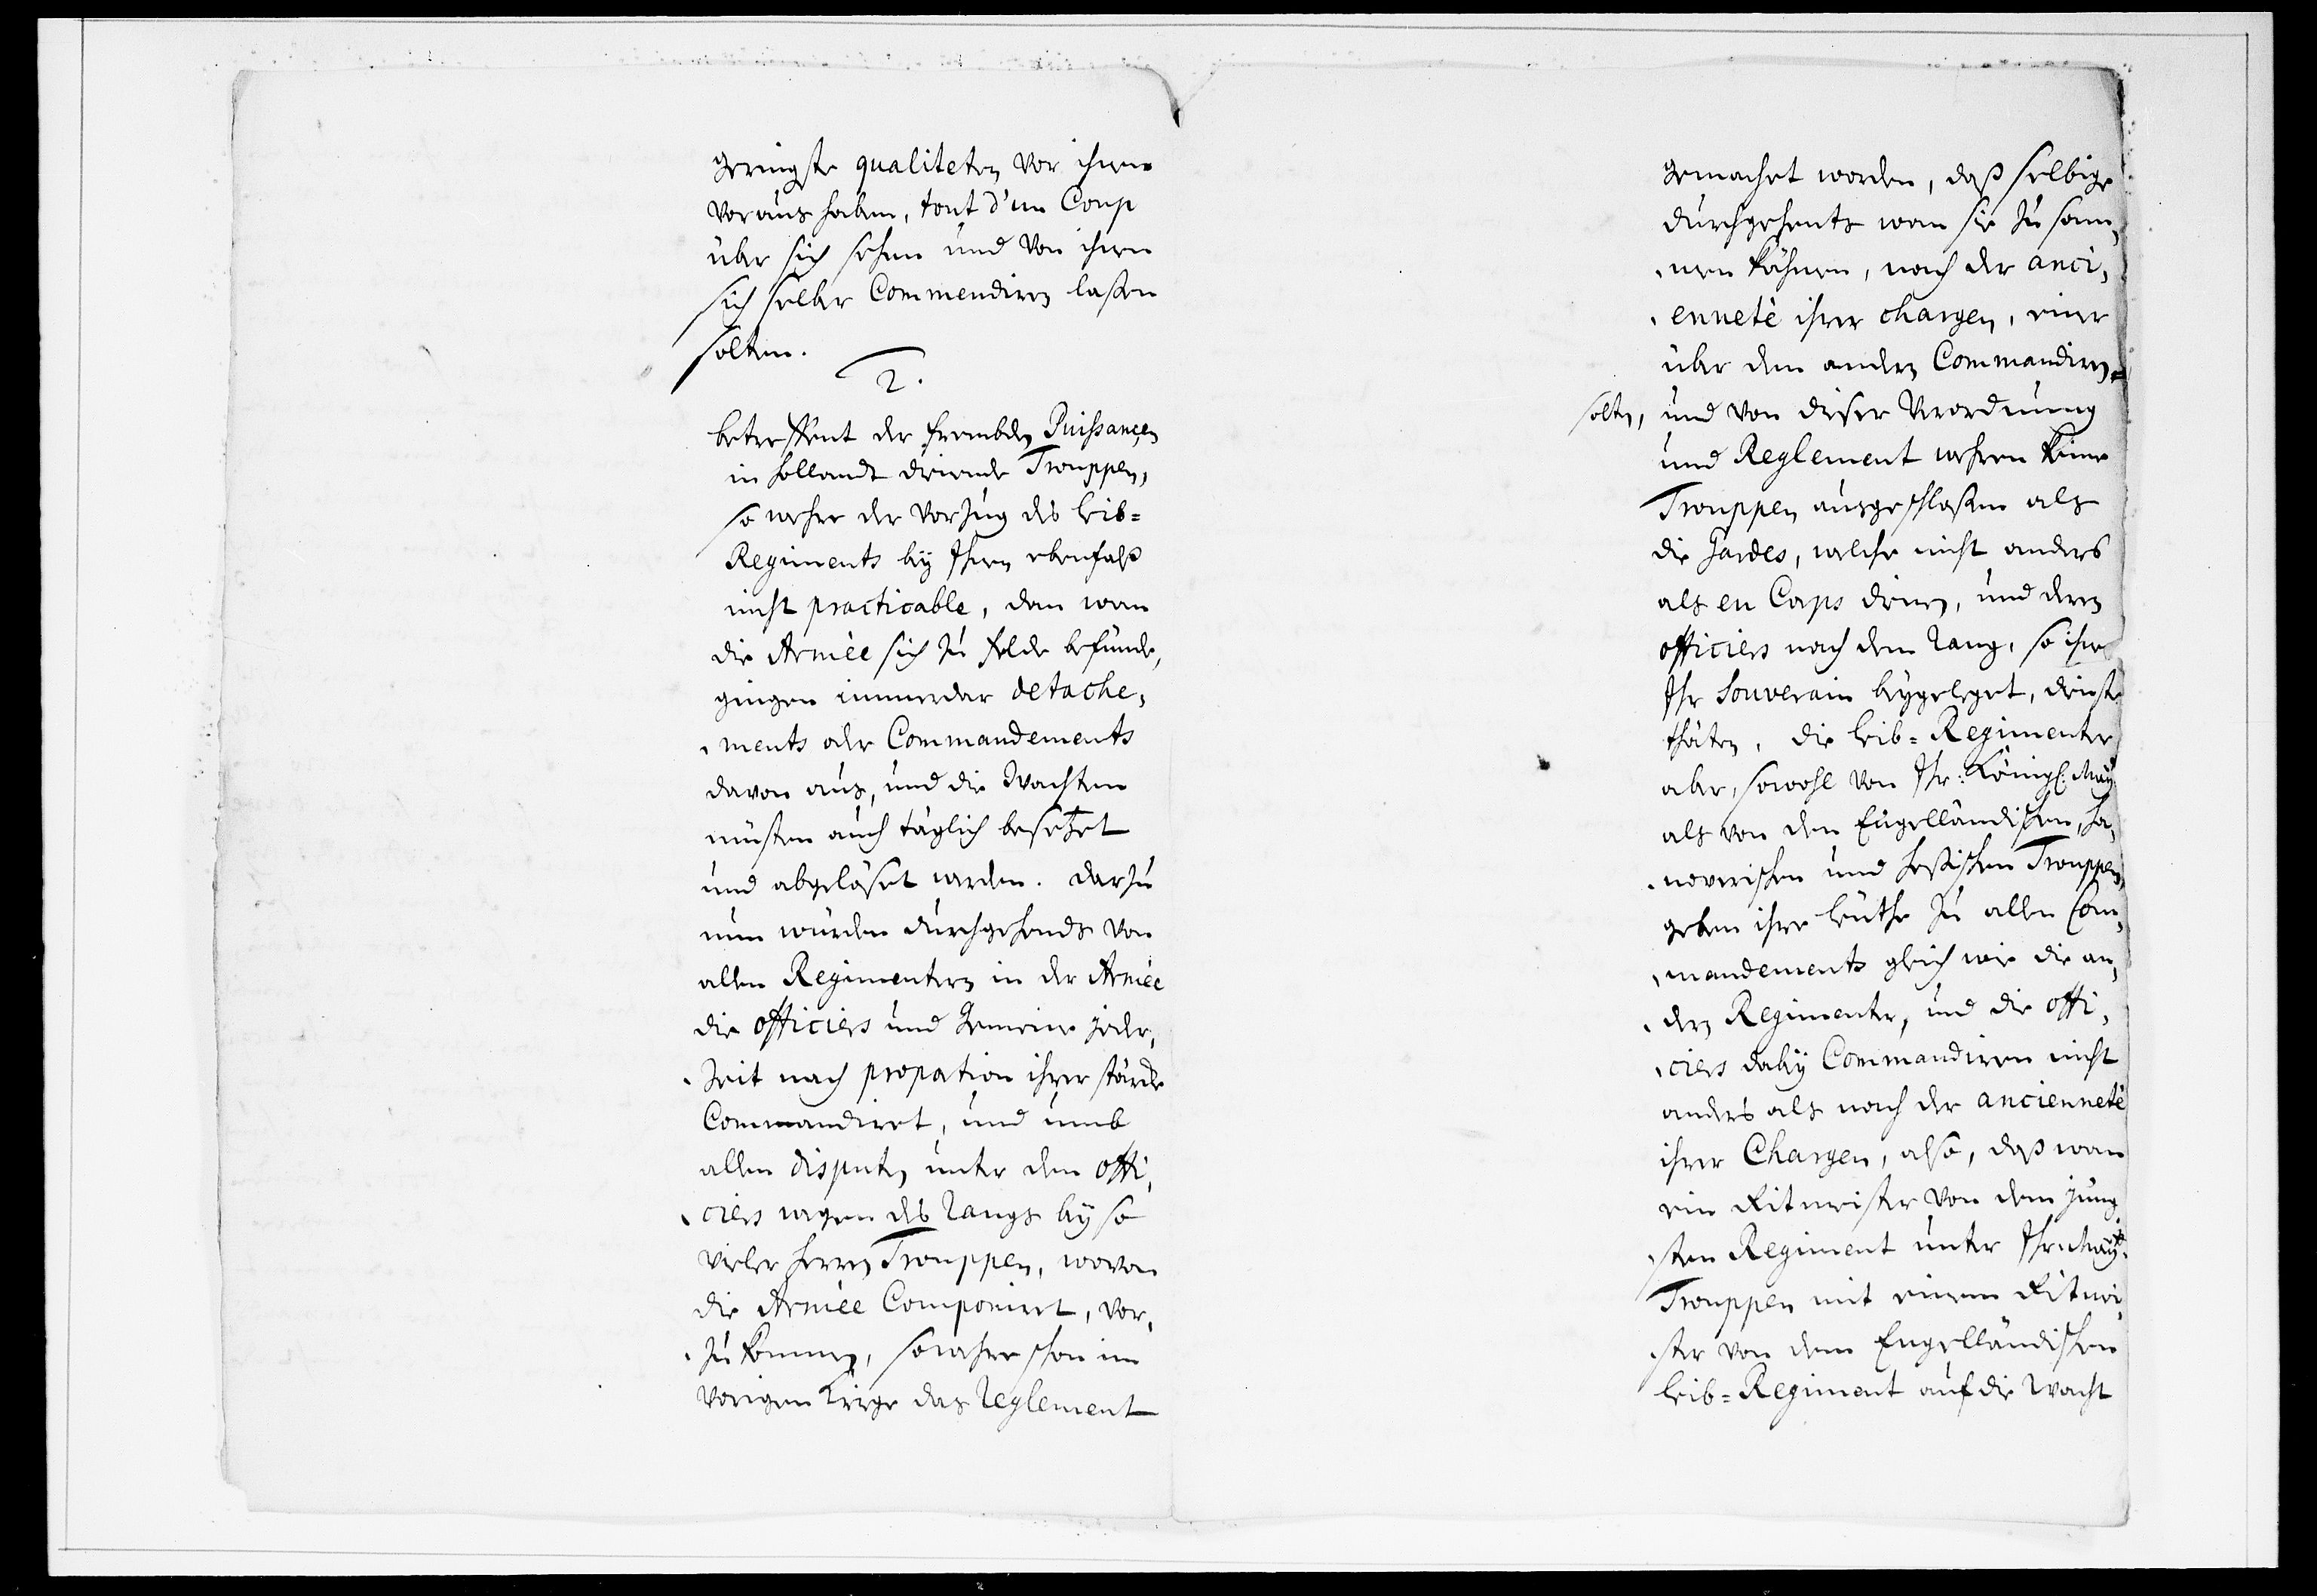 geringste qualiteten vor ihnen
voraus haben, tout d'un Coup
über sich sehen und von ihnen
sich selber Commendiren laßen
solten.
2.
betreffent der frembden Puissançen
in Hollandt diende Trouppen,
so wehre der Vorzug des Leib=
Regiments bey Ihren ebenfalß
nicht practicable, dan wan
die Armèe sich zu felde befünde,
gingen immerdar detache,
ments oder Commandements
davon aus, und die Wachten
müsten auch täglich besetzet
und abgelöset werden. Darzu
nun würden durchgehends von
allen Regimentern in der Armèe
die officiers und Gemeine jeder,
Zeit nach propation ihrer stärcke
Commandiret, und umb
allen disputen unter den offi,
ciers wegen des Rangs bey so
vieler Herren Trouppen, wovon
die Armèe Componiret, vor,
zu kommen, so wehre schon im
vorigen Kriege das Reglement
gemachet worden, daß selbige
durchgehents wan sie zu sam,
men kähmen, nach der anci,
ennetè ihrer chargen, einer
über dem andern Commandiren
solten, und von dieser Verordnung
und Reglement wehren keine
Trouppen ausgeschloßen als
die Gardes, welche nicht anders
als en Corps dienen, und deren
officiers nach dem Rang, so ihnen
Ihr Souverain beygeleget, dienste
thäten, die Leib=Regimenter
aber, sowohl von Ihr: Königl: May:
als von den Engelländischen, Ha,
noverischen und Heßischen Trouppen,
geben ihre Leuthe zu allen Com,
mandements gleich wie die an,
dern Regimenter, und die offi,
ciers dabey Commandiren nicht
anders als nach der anciennetè
ihrer Chargen, also, daß wan
ein Ritmeister von dem jüng
sten Regiment unter Ihr May:
Trouppen mit einem Ritmei,
ster von dem Engelländischen
Leib=Regiment auf die Wacht